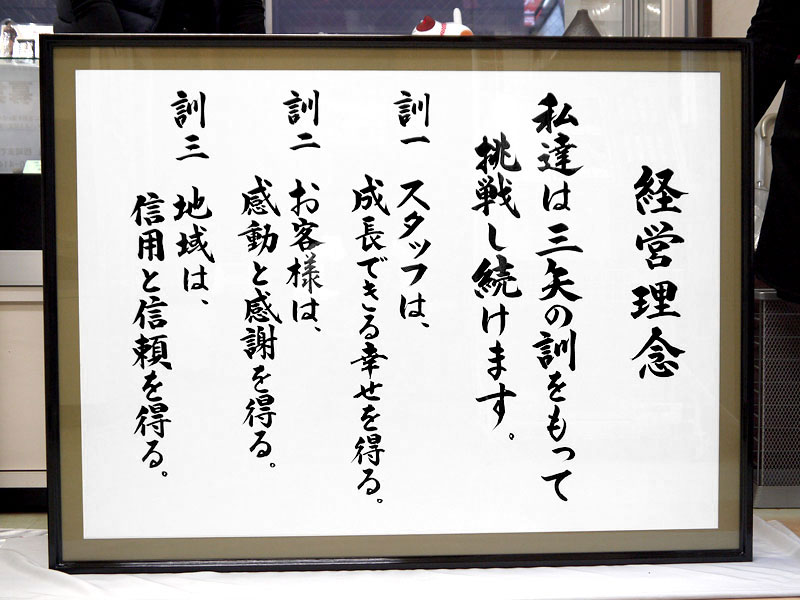 経営理念
私達は三矢の訓をもって
挑戦し続けます。
訓一 スタッフは、
成長できる幸せを得る。
訓二 お客様は、
感動と感謝を得る。
訓三 地域は、
信用と信頼を得る。